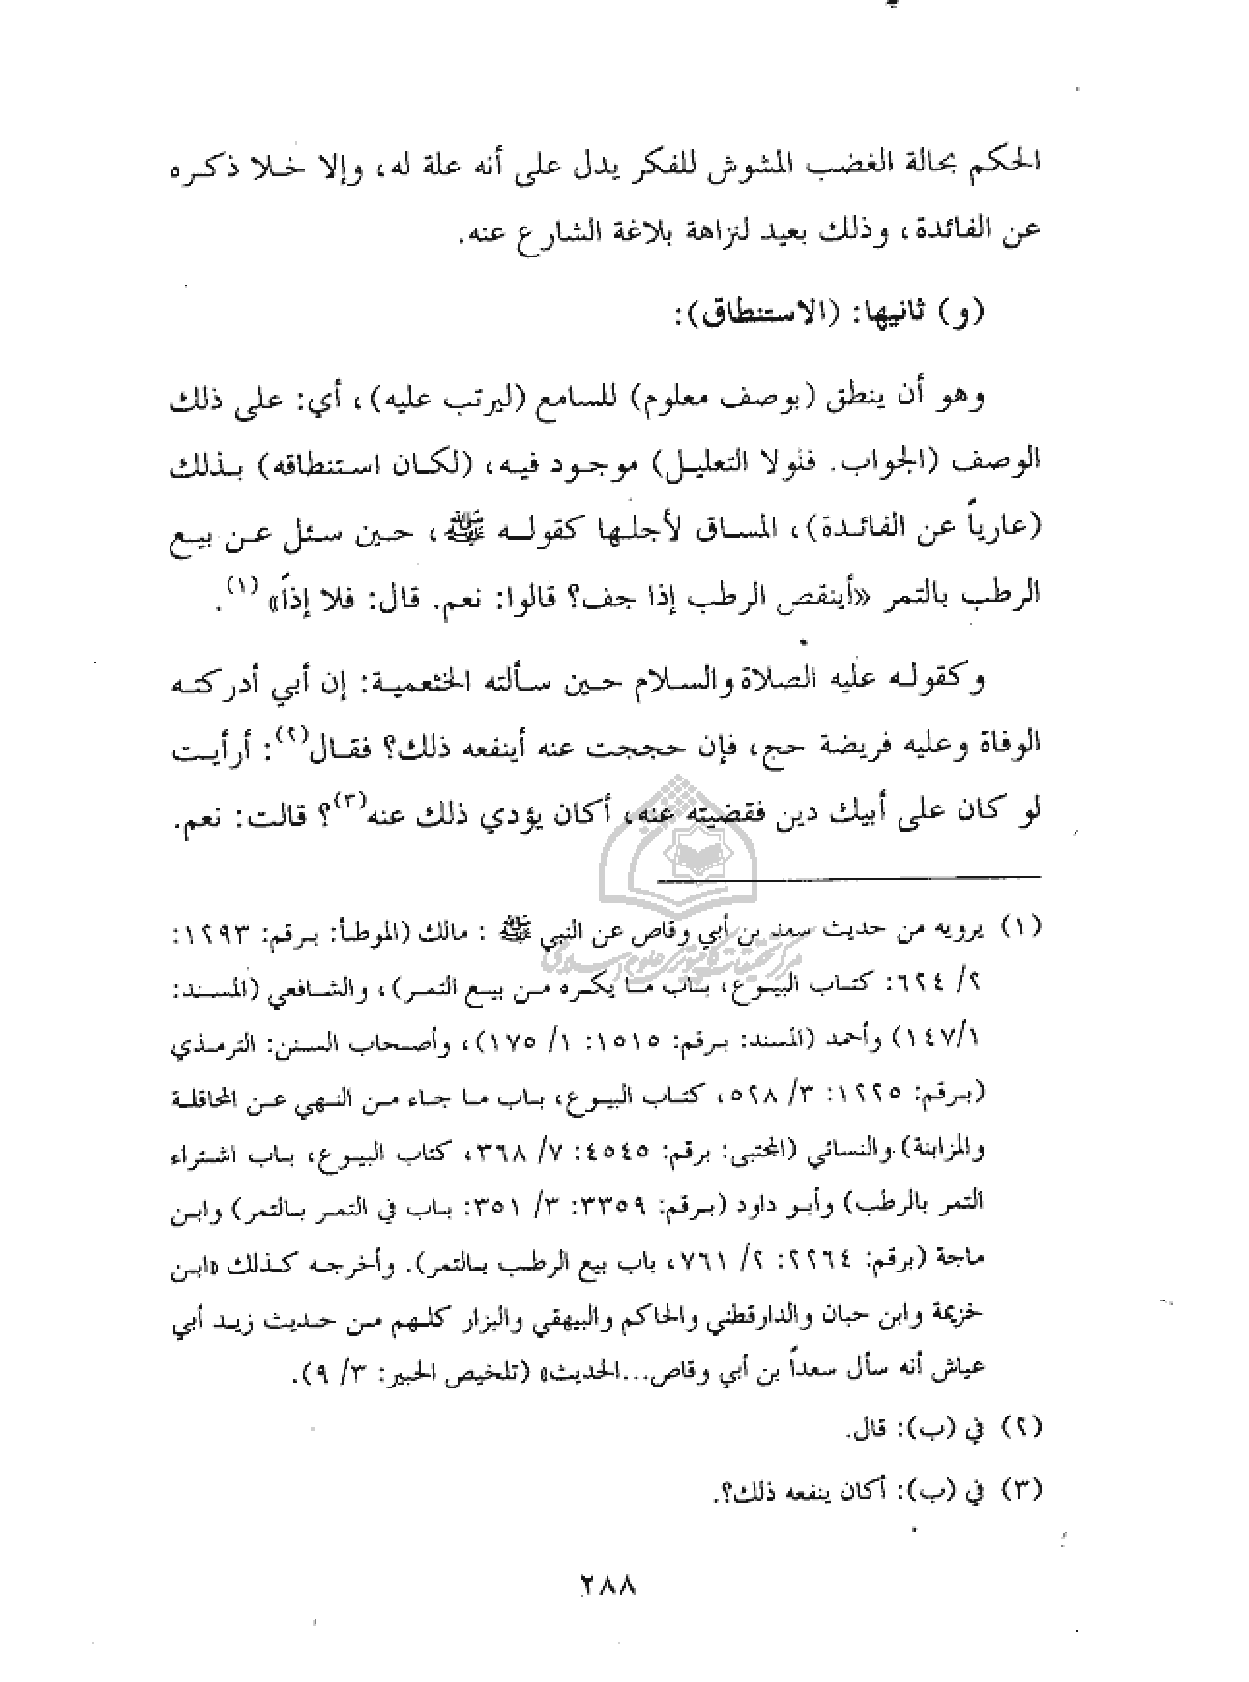 الحكم بحالة الغضب المشوش للفكر يدل على أنه علة له، وإلا خلا ذكره
عن الفائدة، وذلك بعيد لنزاهة بلاغة الشارع عنه.
(و) ثانيها: (الاستنطاق):
وهو أن ينطق (بوصف معلوم) للسامع (ليرتب عليه)، أي: على ذلك
الوصف (الجواب. فلولا التعليل) موجود فيه، (لكان استنطاقه) بذلك
(عارياً عن الفائدة)، المساق لأجلها كقوله ﷺ، حين سئل عن بيع
الرطب بالتمر «أينقص الرطب إذا جف؟ قالوا: نعم. قال: فلا إذاً» (١).
وكقوله عليه الصلاة والسلام حين سألته الخثعمية: إن أبي أدركته
الوفاة وعليه فريضة حج، فإن حججت عنه أينفعه ذلك؟ فقال(٢): أرأيت
لو كان على أبيك دين فقضيته عنه، أكان يؤدي ذلك عنه(٣)؟ قالت: نعم.
(١) يرويه من حديث سعد بن أبي وقاص عن النبي ﷺ : مالك (الموطأ: برقم: ١٢٩٣:
٢/ ٦٢٤: كتاب البيوع، باب ما يكره من بيع التمر)، والشافعي (المسند:
١/١٤٧) وأحمد (المسند: برقم: ١٥١٥: ١/ ١٧٥)، وأصحاب السنن: الترمذي
(برقم: ١٢٢٥: ٣/ ٥٢٨، كتاب البيوع، باب ما جاء من النهي عن المحاقلة
والمزابنة) والنسائي (المجتبى: برقم: ٤٥٤٥: ٧/ ٣٦٨، كتاب البيوع، باب اشتراء
التمر بالرطب) وأبو داود (برقم: ٣٣٥٩: ٣/ ٣٥١: باب في التمر بالتمر) وابن
ماجة (برقم: ٢٢٦٤: ٢/ ٧٦١، باب بيع الرطب بالتمر). وأخرجه كذلك «ابن
خزيمة وابن حبان والدارقطني والحاكم والبيهقي والبزار كلهم من حديث زيد أبي
عياش أنه سأل سعداً بن أبي وقاص...الحديث» (تلخيص الحبير: ٣/ ٩).
(٢) في (ب): قال.
(٣) في (ب): أكان ينفعه ذلك؟.
٢٨٨